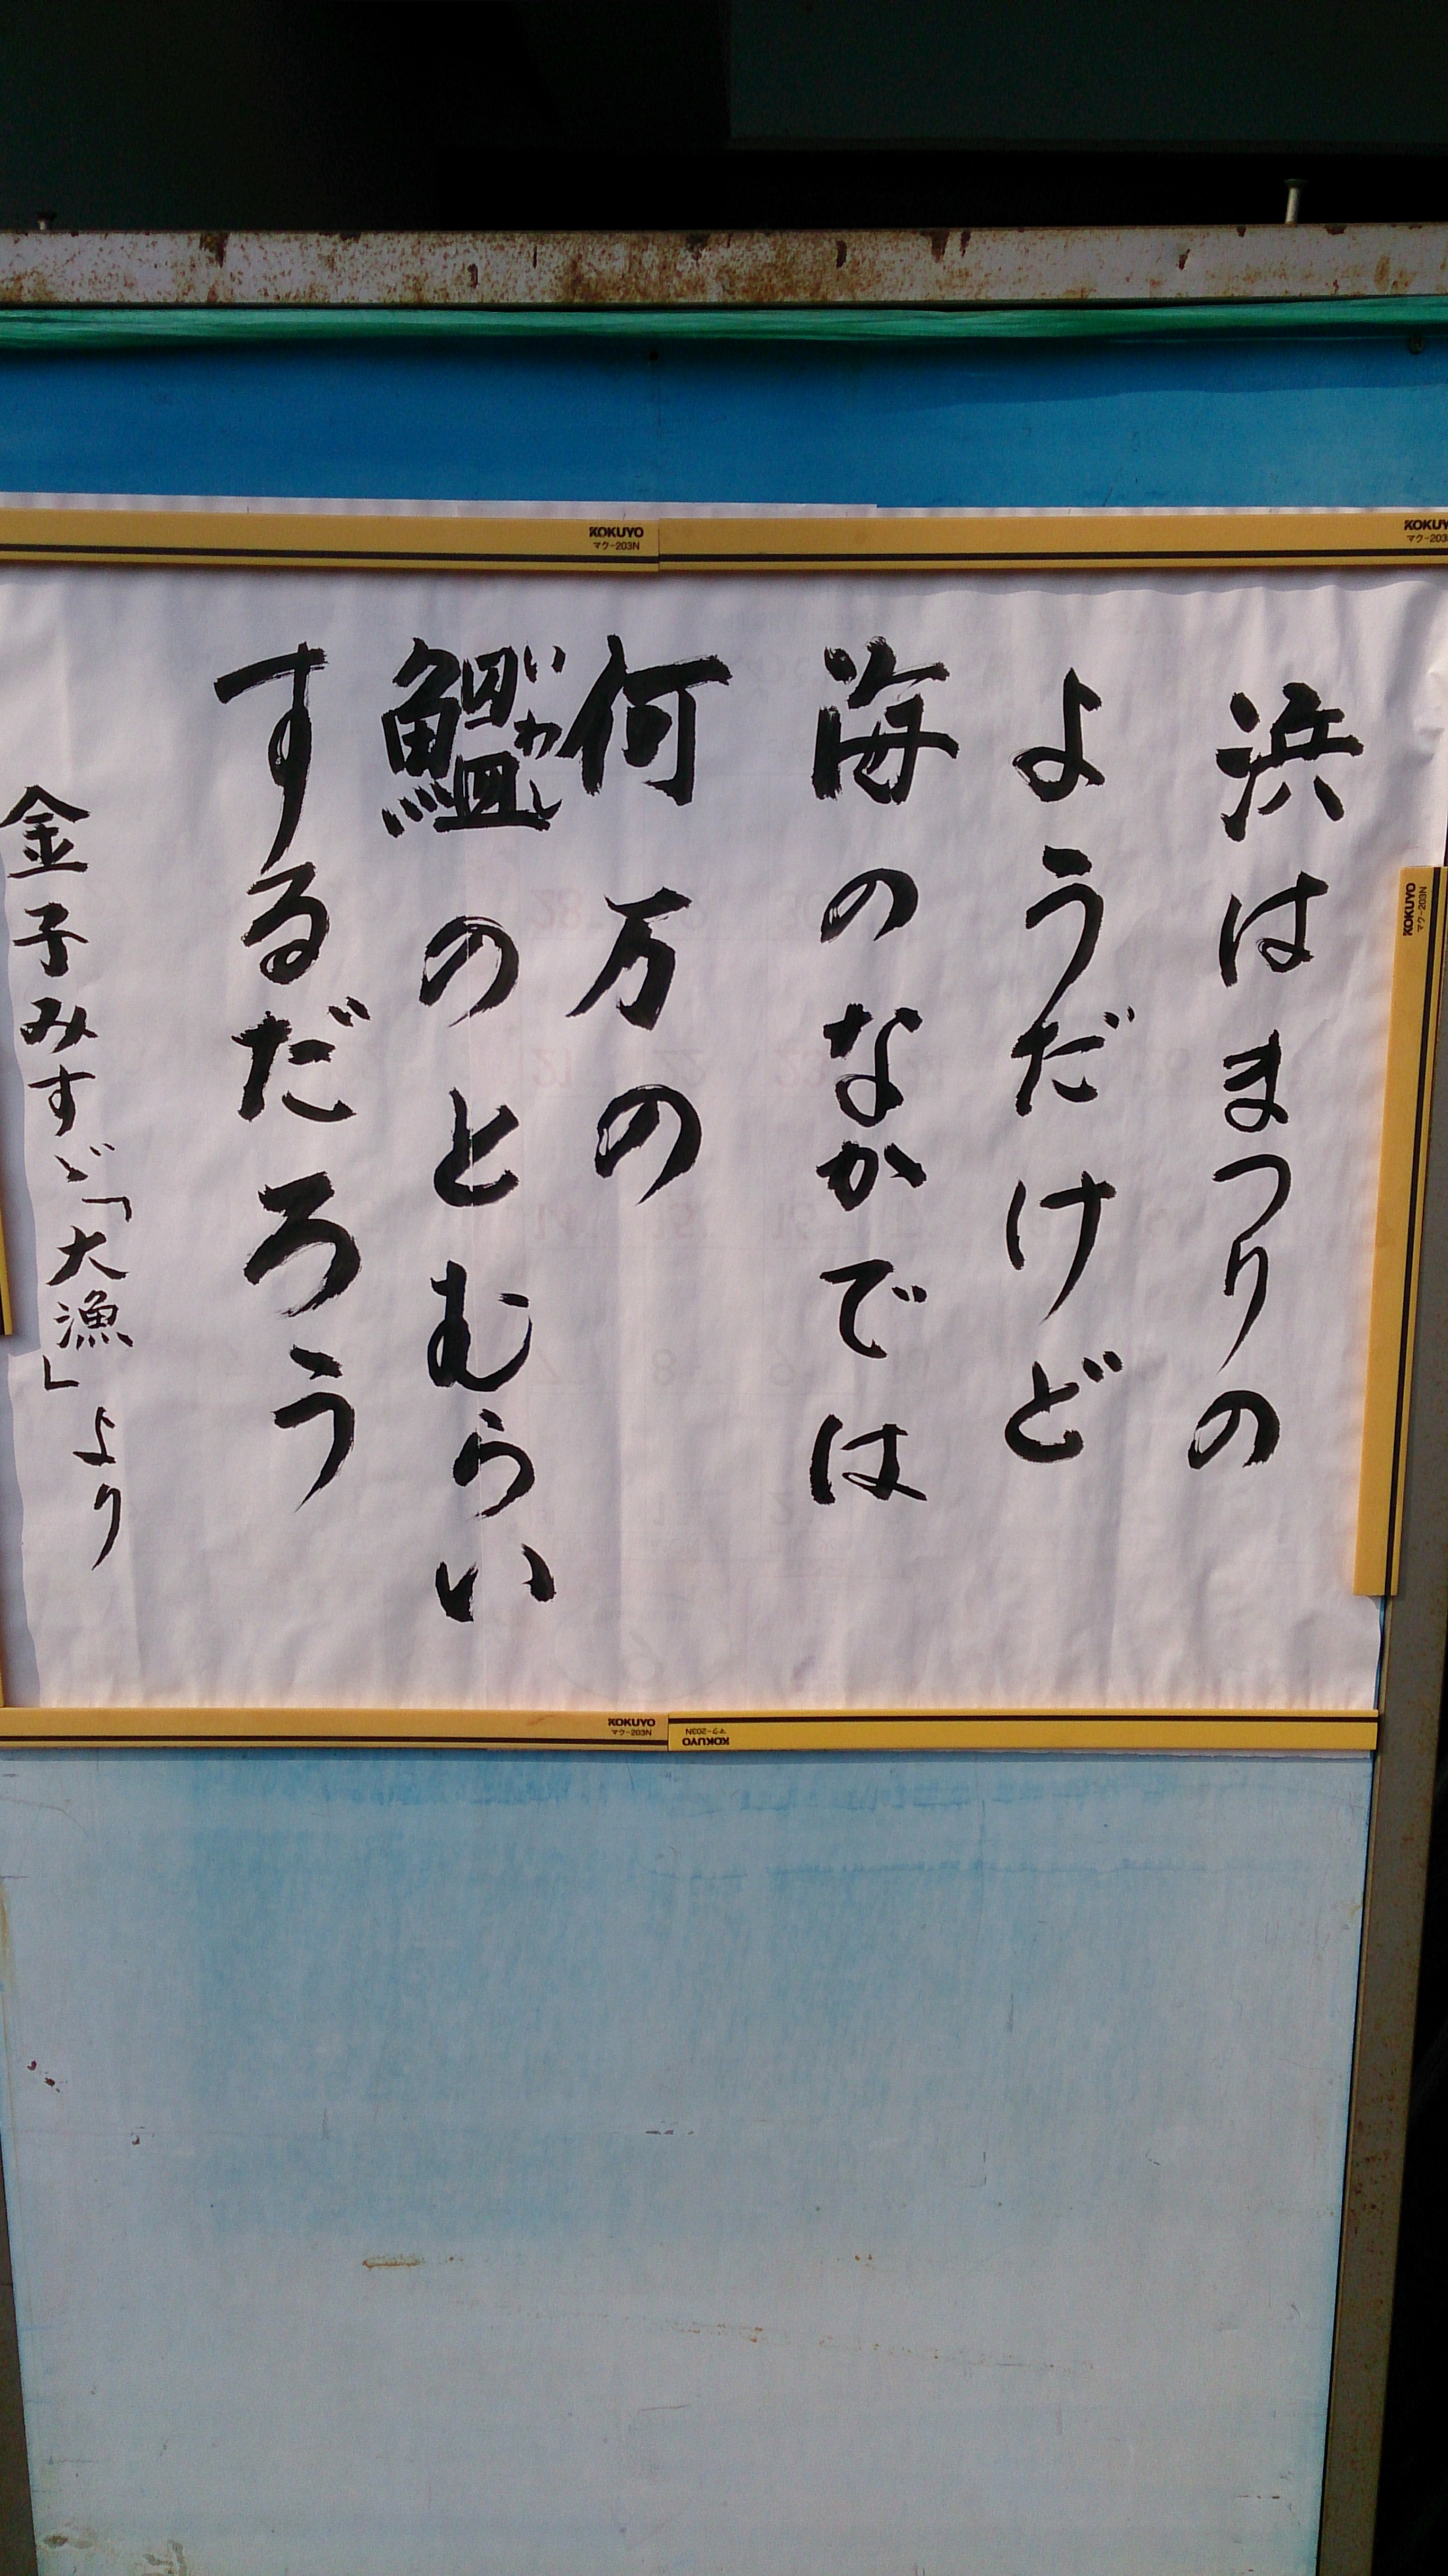 浜はまつりの
ようだけど
海のなかでは
何万の
鰮のとむらい
いわし
するだろう
金子みすゞ「大漁」より
KOKUYO
マク-203N
KOKUY
マク-203
KOKUYO
マク-203N
KOKUYO
マク-203N
KOKUYO
マク-203N